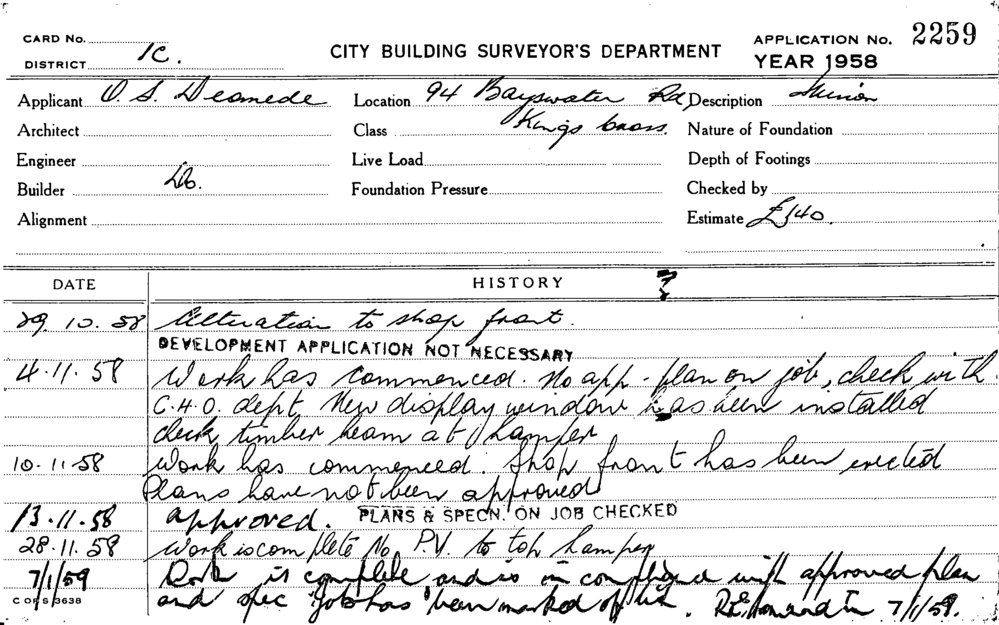 CARD No.
DISTRICT 1C.
CITY BUILDING SURVEYOR'S DEPARTMENT
APPLICATION No. 2259
YEAR 1958
Applicant O. S. Location 94 Bayswater Rd, Description
Architect Class Kings Cross. Nature of Foundation
Engineer Live Load Depth of Footings
Builder Do. Foundation Pressure Checked by
Alignment Estimate £140.
DATE HISTORY
29. 10. 58 Alteration to shop front.
DEVELOPMENT APPLICATION NOT NECESSARY
4.11.58 Work has commenced. No app. plan on job, check with
C.H.O. dept. New display window has been installed
check timber beam at hamper
10.11.58 Work has commenced. Shop front has been erected
Plans have not been approved
13.11.58 approved. PLANS & SPECN. ON JOB CHECKED
28.11.58 Work is complete No P.V. to top hamper
7/1/59 Work is complete and is in with approved plan
C OF S 3638 and spec Job has been marked off 7/1/59.